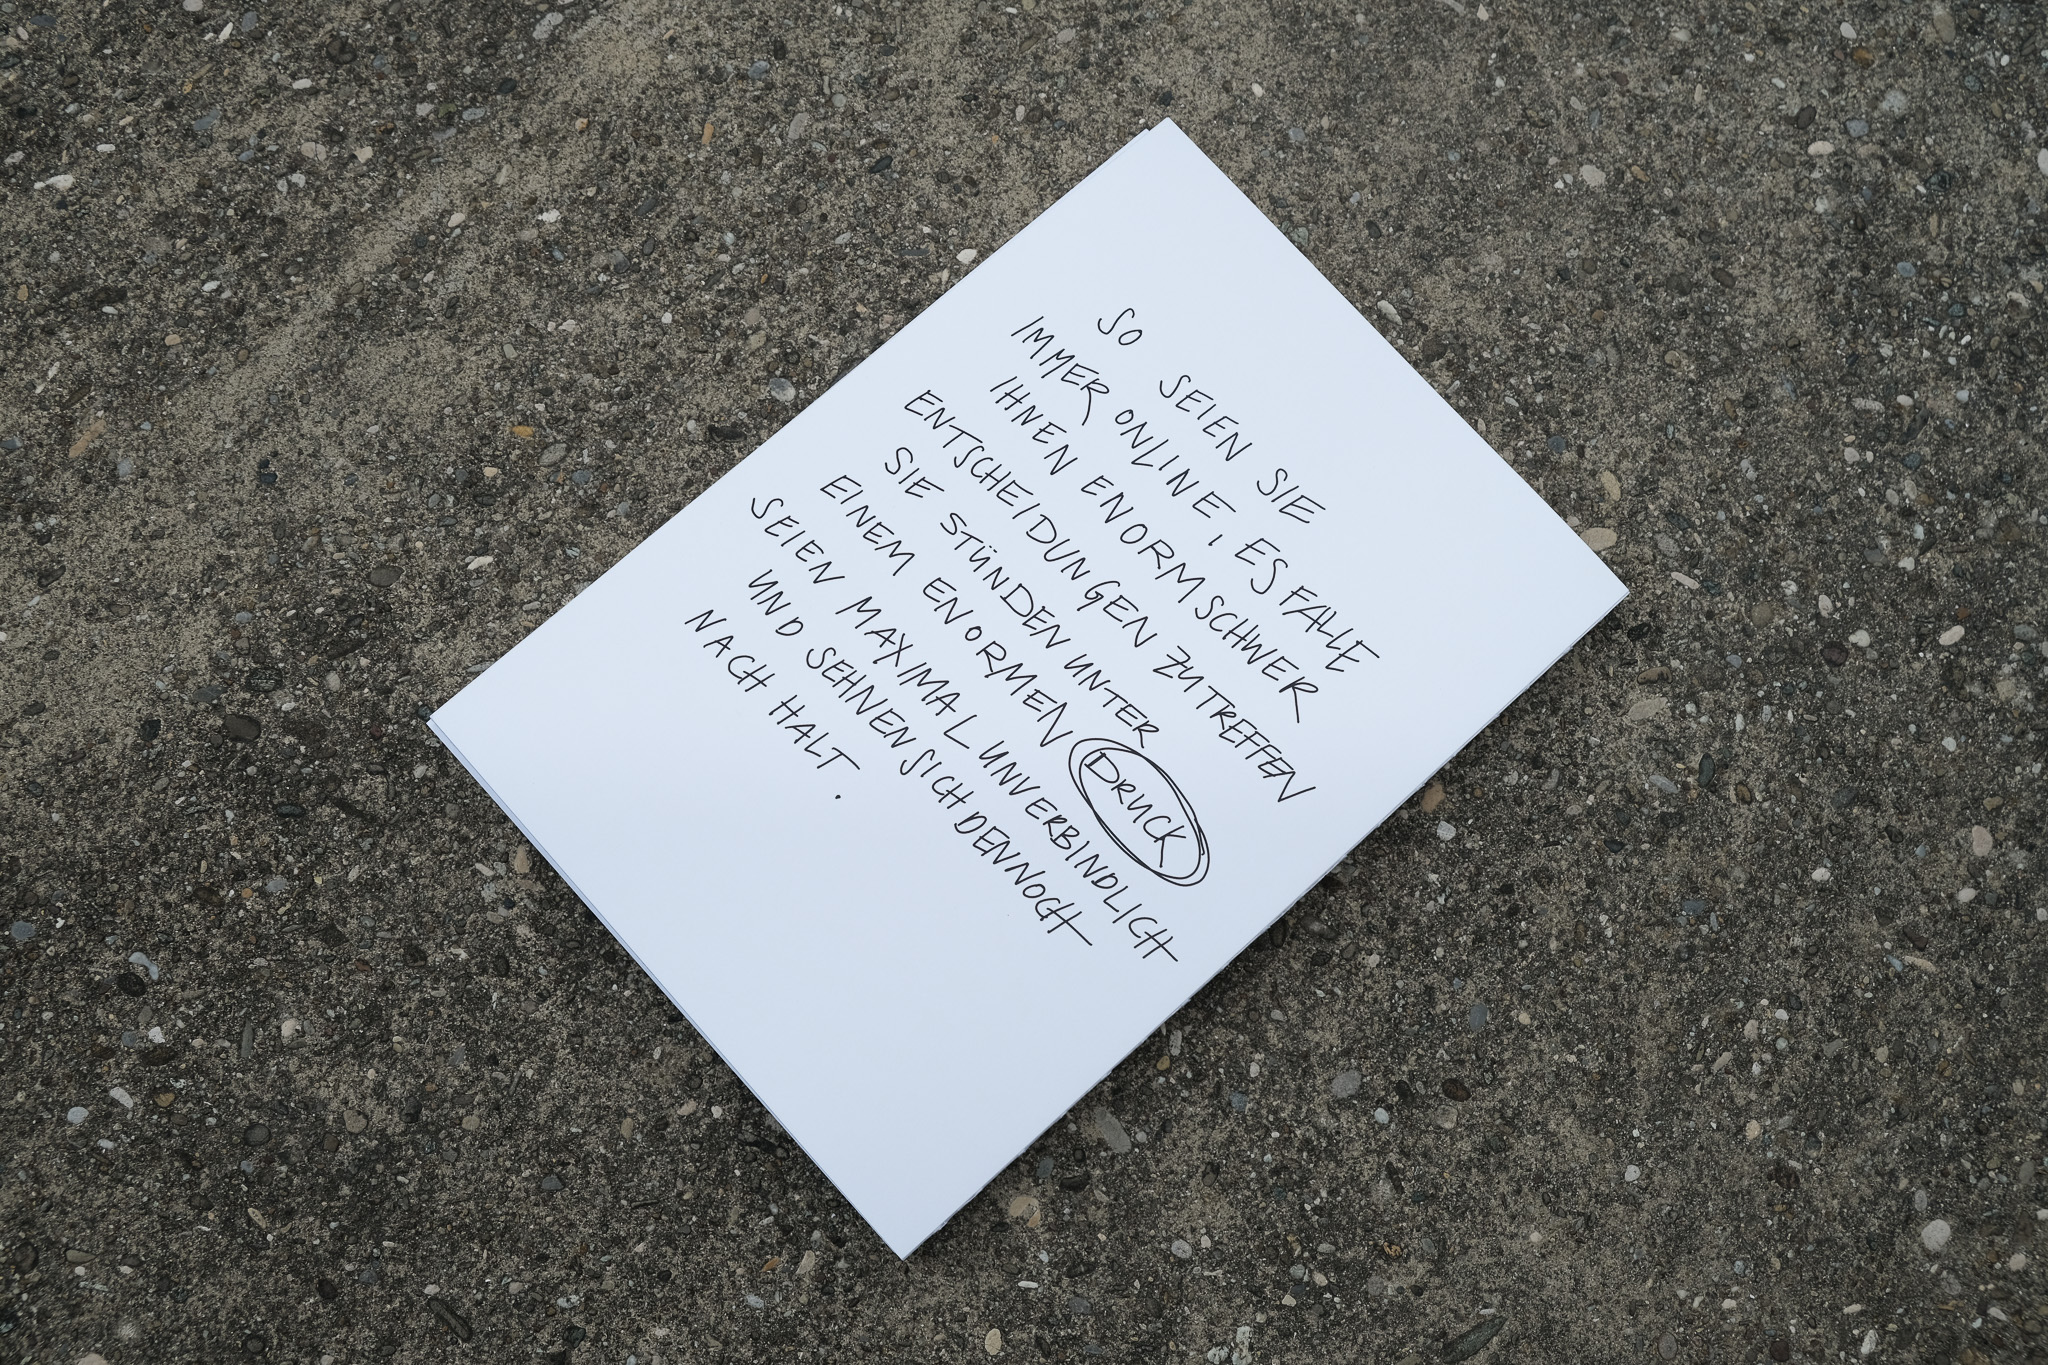 SO SEIEN SIE
IMMER ONLINE, ES FALLE
IHNEN ENORM SCHWER
ENTSCHEIDUNGEN ZU TREFFEN
SIE STÜNDEN UNTER
EINEM ENORMEN DRUCK
SEIEN MAXIMAL UNVERBINDLICH
UND SEHNEN SICH DENNOCH
NACH HALT.